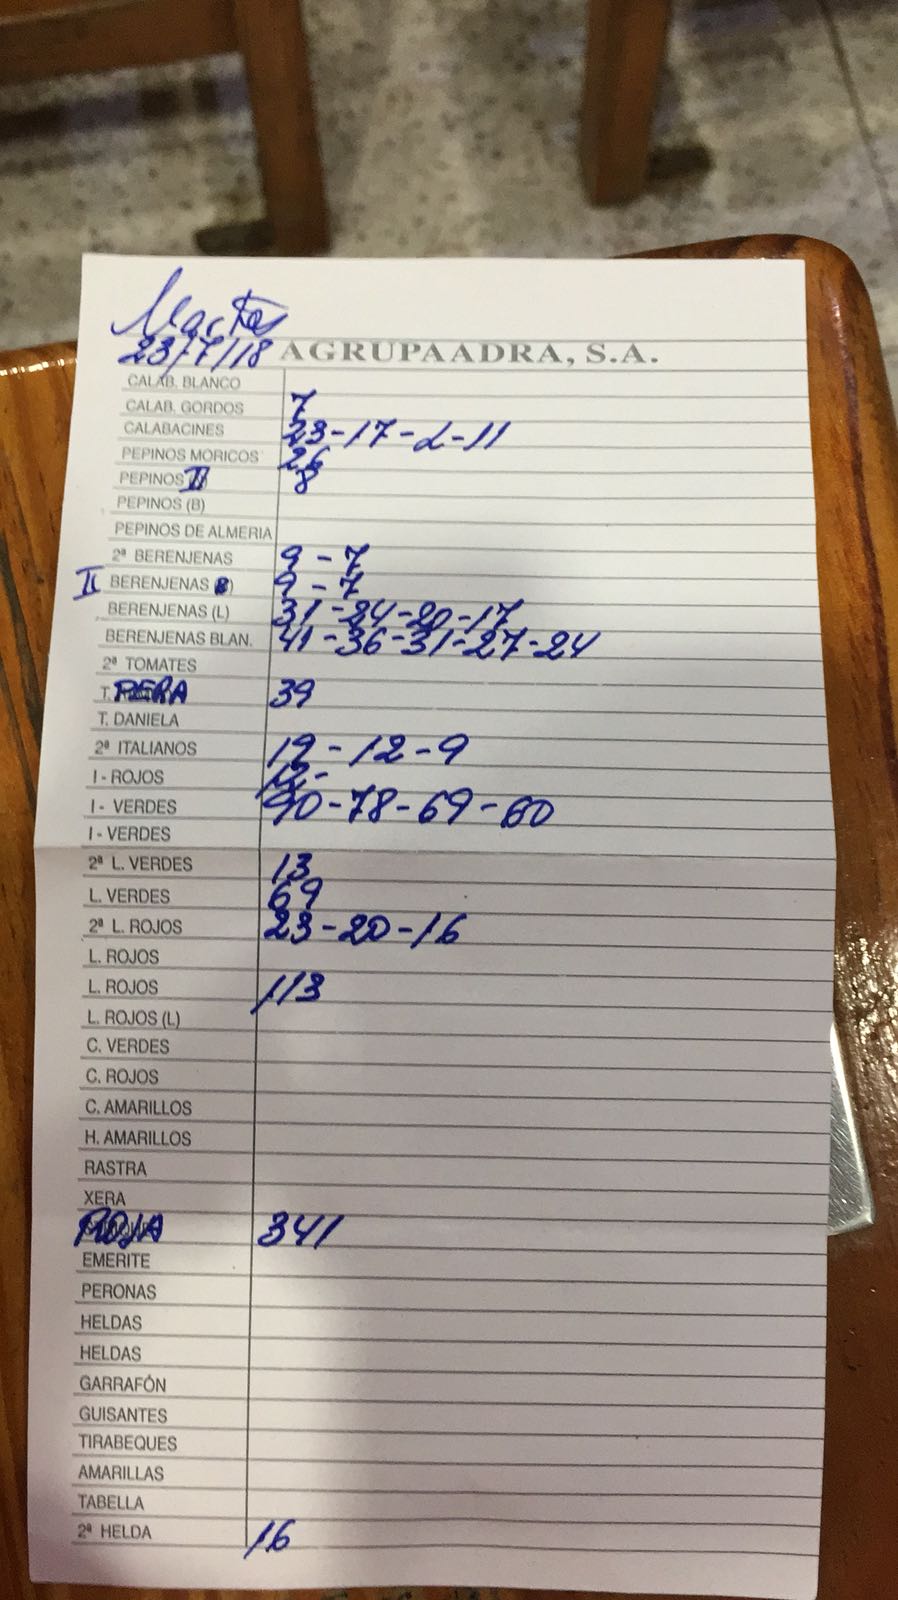 23/7/18 AGRUPAADRA, S.A.
CALAB. BLANCO
CALAB. GORDOS 7
CALABACINES 23-17-2-11
PEPINOS MORICOS 26
PEPINOS II 8
PEPINOS (B)
PEPINOS DE ALMERIA
2ª BERENJENAS 9-7
II BERENJENAS 9-7
BERENJENAS (L) 31-24-20-17
BERENJENAS BLAN. 41-36-31-27-24
2ª TOMATES
T. PERA 39
T. DANIELA
2ª ITALIANOS 19-12-9
I - ROJOS 12-
I - VERDES 90-78-69-60
I - VERDES
2ª L. VERDES 13
L. VERDES 69
2ª L. ROJOS 23-20-16
L. ROJOS
L. ROJOS 113
L. ROJOS (L)
C. VERDES
C. ROJOS
C. AMARILLOS
H. AMARILLOS
RASTRA
XERA
ROJA 341
EMERITE
PERONAS
HELDAS
HELDAS
GARRAFÓN
GUISANTES
TIRABEQUES
AMARILLAS
TABELLA
2ª HELDA 16